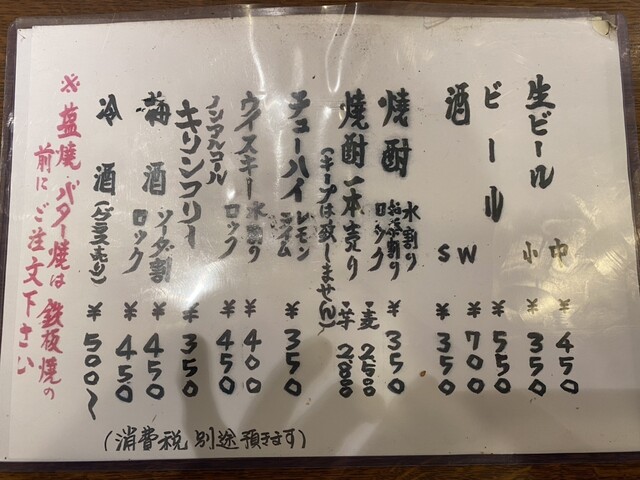 生ビール 中 ¥450
小 ¥350
ビール ¥550
酒 W ¥700
S ¥350
焼酎 水割り お湯割り ロック ¥350
焼酎一本売り ・麦 2500
(キープは致しません) ・芋 2800
チューハイ レモン ライム ¥350
ウイスキー 水割り ¥400
ロック ¥450
ノンアルコール
キリンフリー ¥350
梅酒 ソーダ割 ¥450
ロック ¥450
冷酒(グラス売り) ¥500〜
※塩焼・バター焼は鉄板焼の
前にご注文下さい
(消費税 別途預きます)